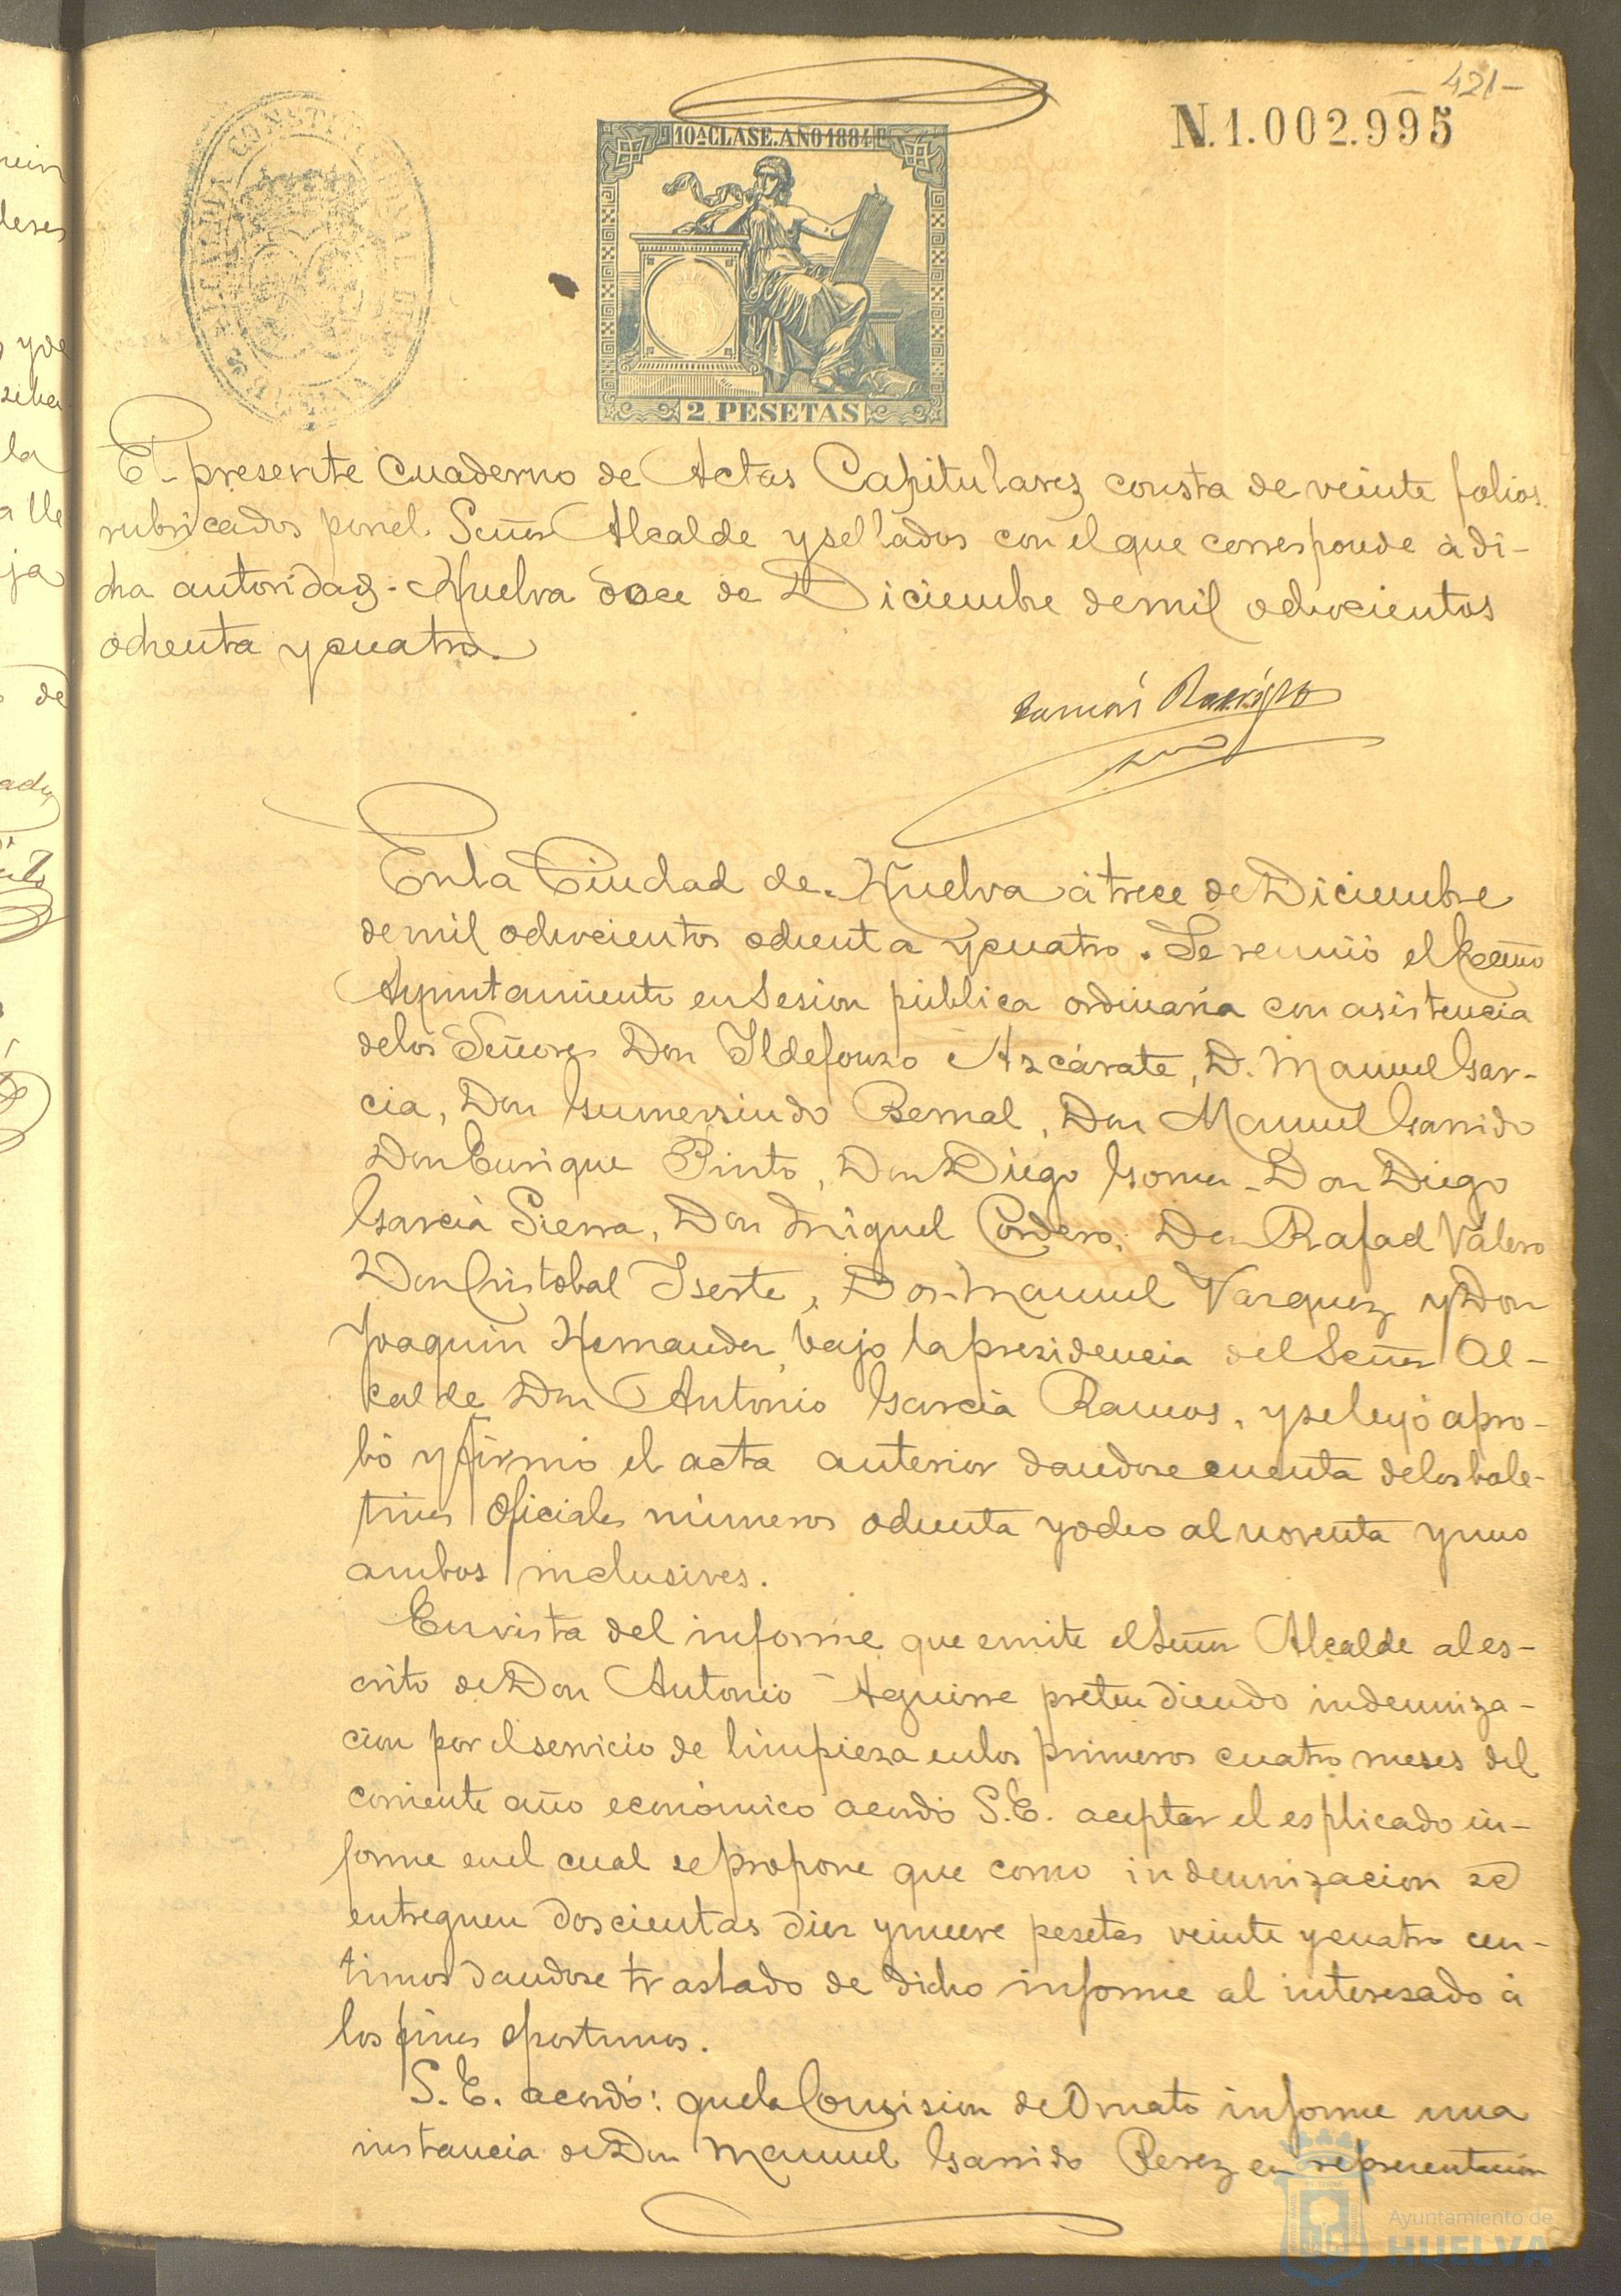 421-
N.1.002.995
10ª CLASE. AÑO 1884
2 PESETAS
El presente Cuaderno de Actas Capitulares consta de veinte folios
rubricados por el Señor Alcalde y sellados con el que corresponde á di-
cha autoridad. Huelva doce de Diciembre de mil ochocientos
ochenta y cuatro.
En la Ciudad de Huelva á trece de Diciembre
de mil ochocientos ochenta y cuatro. Se reunió el Excmo
Ayuntamiento en Sesion pública ordinaria con asistencia
de los Señores Don Ildefonso Azcárate, D. Manuel Gar-
cia, Don Gumersindo Bernal, Don Manuel Garrido
Don Enrique Pinto, Don Diego Gomez Don Diego
Garcia Sierra, Don Miguel Cordero, Don Rafael Valero
Don Cristobal Iserte, Don Manuel Vazquez y Don
Joaquin Hernandez, bajo la presidencia del Señor Al-
calde Don Antonio Garcia Ramos, y se leyó apro-
bó y firmó el acta anterior dandose cuenta de los bole-
tines Oficiales números ochenta y ocho al noventa y uno
ambos inclusives.
En vista del informe que emite el Señor Alcalde al es-
crito de Don Antonio Aguirre pretendiendo indemniza-
cion por el servicio de limpieza en los primeros cuatro meses del
corriente año económico acordó S.E. aceptar el esplicado in-
forme en el cual se propone que como indemnizacion se
entreguen doscientas diez y nueve pesetas veinte y cuatro cen-
timos dandose traslado de dicho informe al interesado á
los fines oportunos.
S.E. acordó: que la Comision de Ornato informe una
instancia de Don Manuel Garrido Perez en representacion
Ayuntamiento de
HUELVA